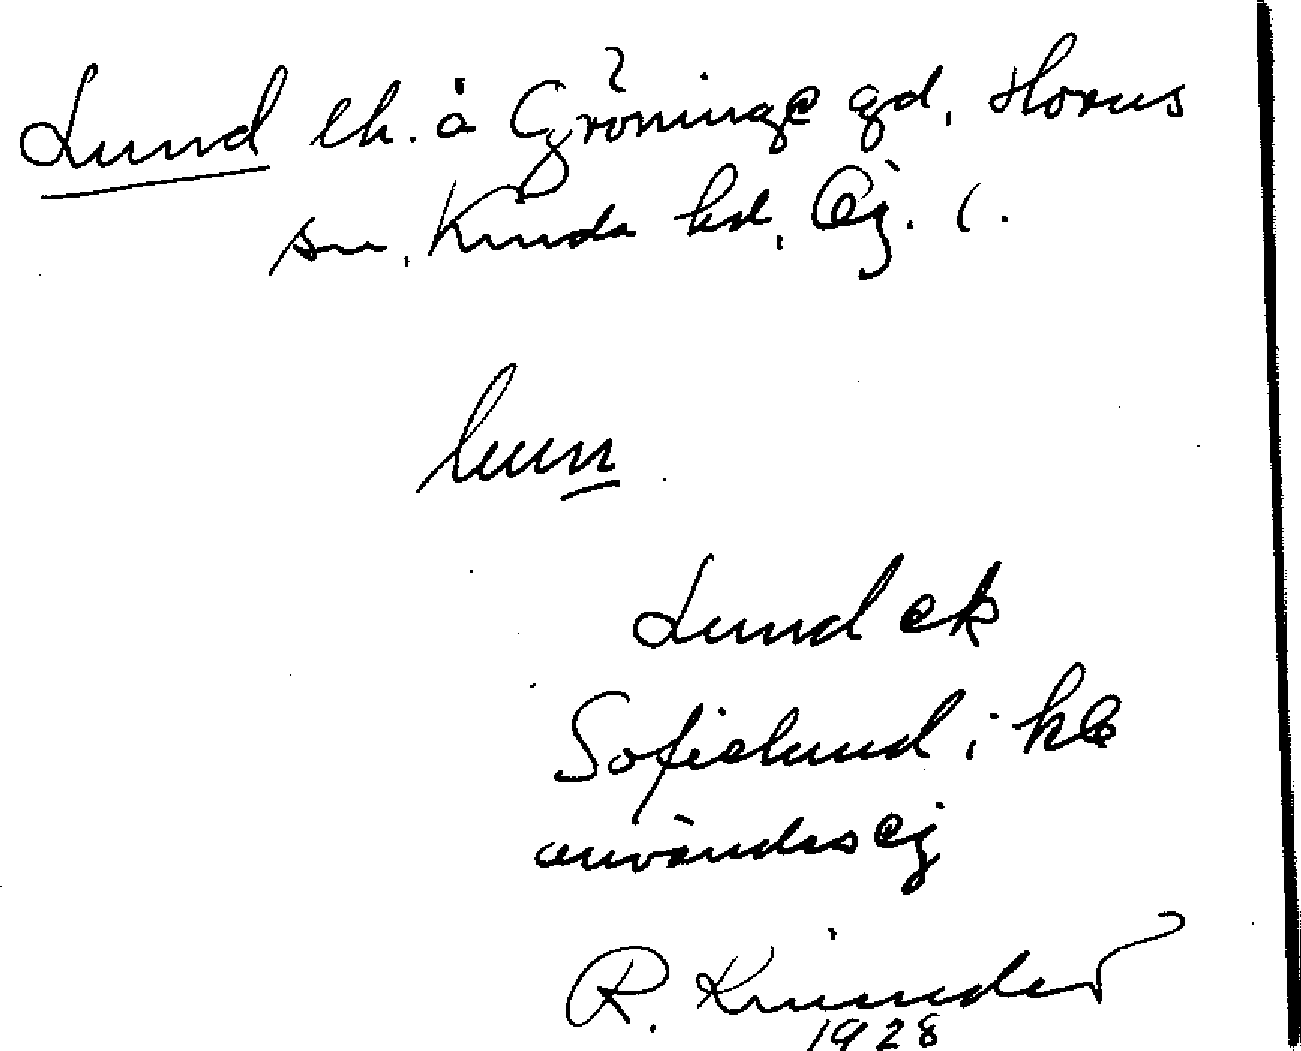 Lund lh. å Gröninge gd. Horns
sn, Kinda hd, Ög. l.
lun
Lund ek
Sofielund i kb
användes ej
R.
1928